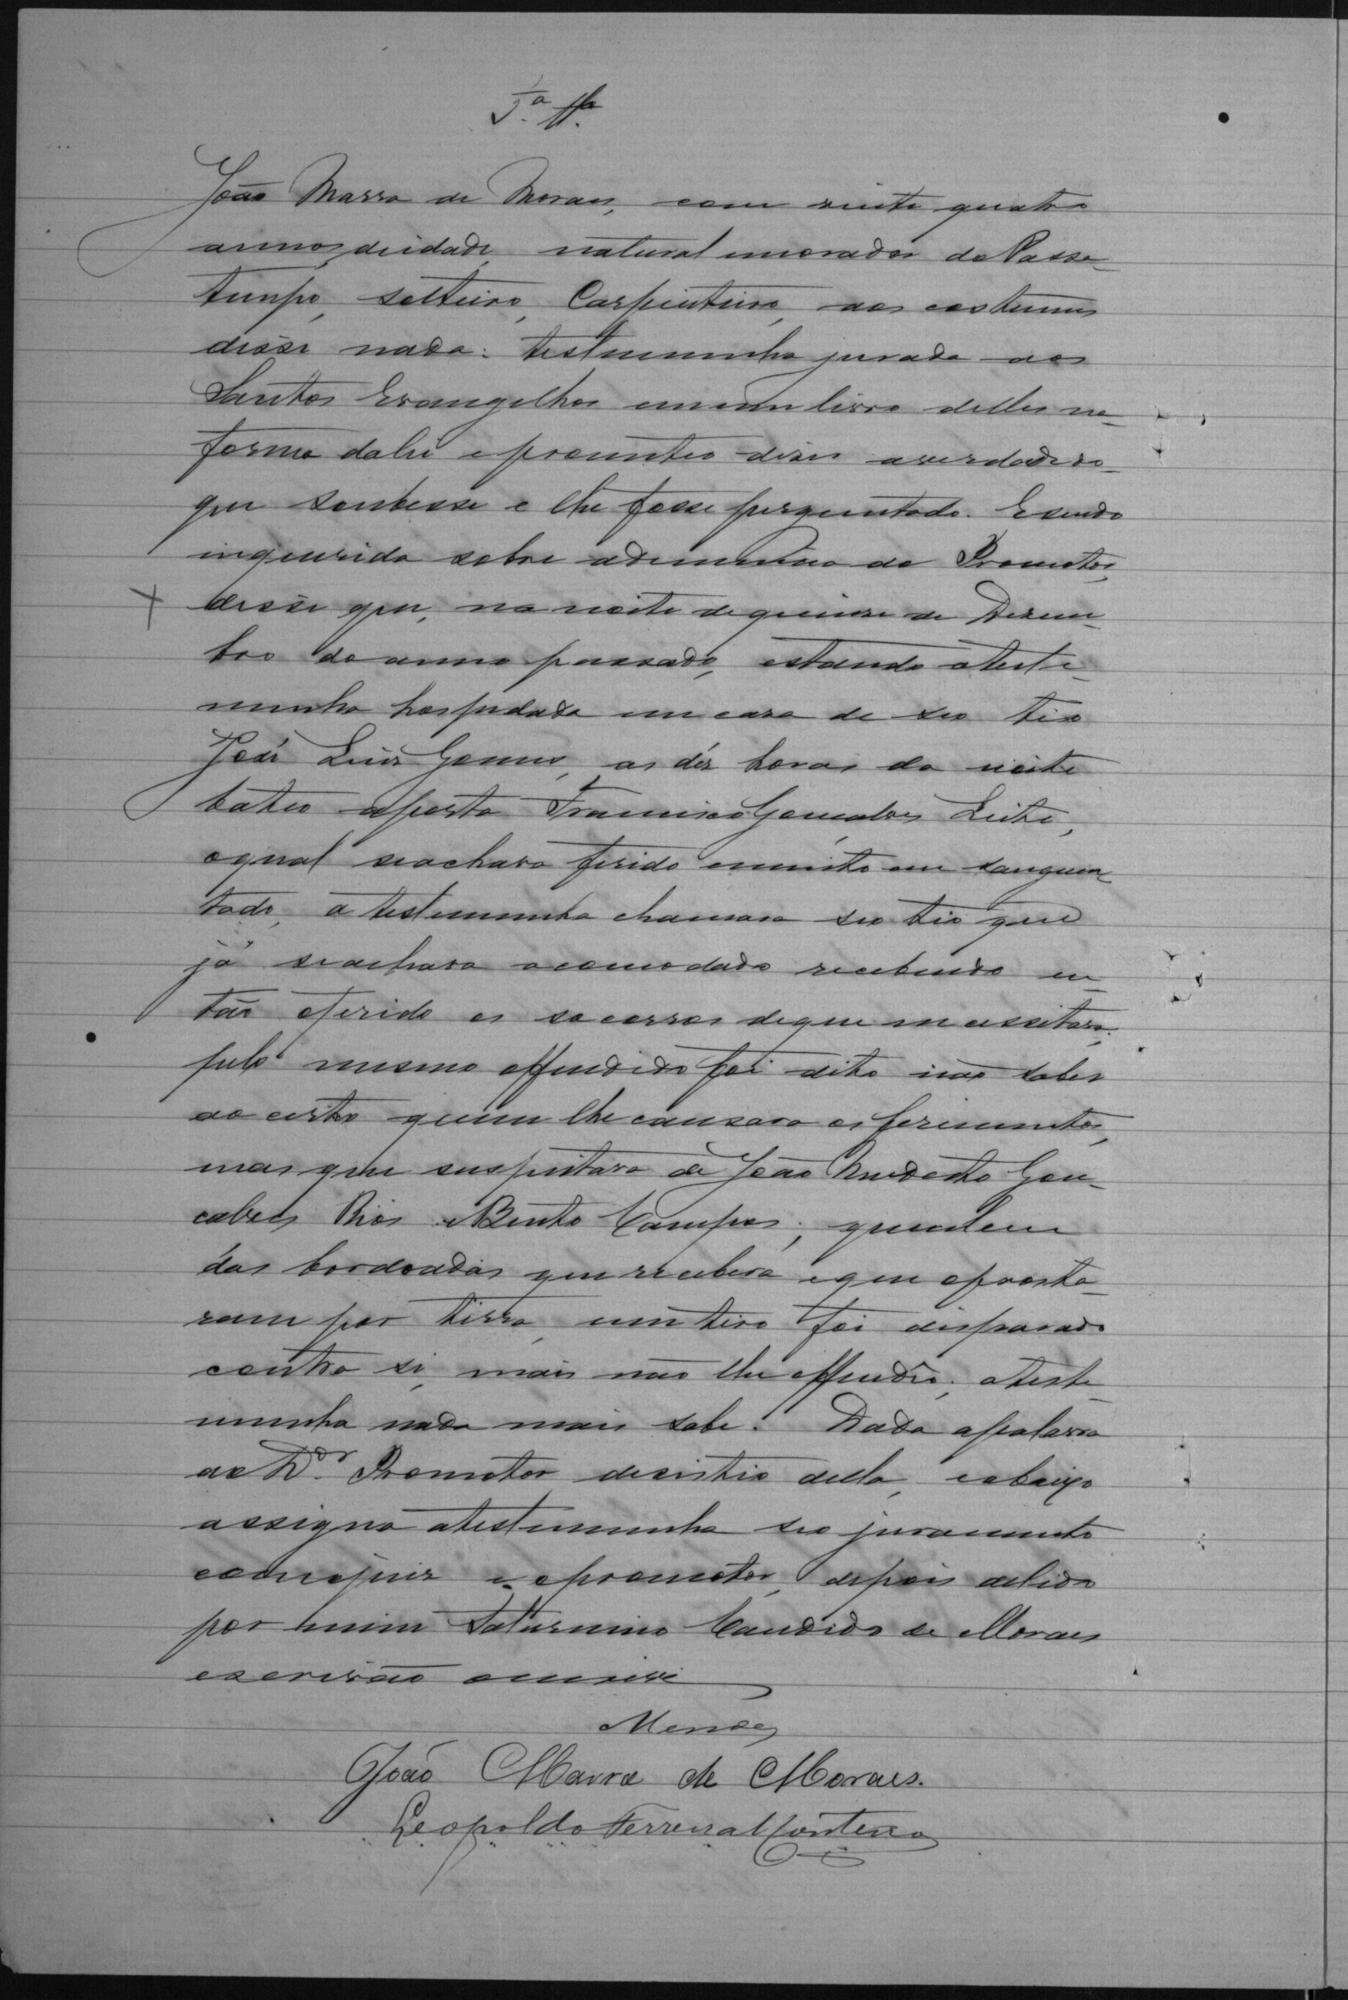 5.ª Tª
João Marra de Moraes, com vinte quatro
annos deidade, natural emorador do Passa-
tempo, solteiro, Carpinteiro, aos costumes
disse nada: testemunha jurada aos
Santos Evangelhos em um livro delles na
forma dalei e prometteo diser averdade do
que soubesse e lhe fosse perguntado. Esendo
inquerida sobre adenuncia do Promotor,
disse que, na noite dequinse de Desem-
bro do anno passado, estando ateste-
munha hospedada em casa de seo tio
José Luis Gomes, as dés horas da noite
bateo aporta Francisco Gonçalves Leite,
oqual seachava ferido emuito em sanguen
tado, a testemunha chamara seo tio que
já seachava acomodado recebendo en-
tão oferido os socorros deque necessitava;
pelo mesmo offendido foi dito não saber
ao certo quem lhe causara os ferimentos,
mas que suspeitava de João Modesto Gon-
calves Rios e Bento Campos, que alem
das bordoadas que recebera e que oprosta-
ram por terra, um tiro foi disparado
contra si, mais não lhe offendeo; ateste-
munha nada mais sabe. Dada apalavra
ao Dor. Promotor desistio della, eabaixo
assigna atestemunha seo juramento
comojuis e opromotor, depois delido
por mim Saturnino Candido de Moraes
escrivão oescrevi
Mendes
João Marra de Moraes.
Leopoldo Ferreira Monteiro